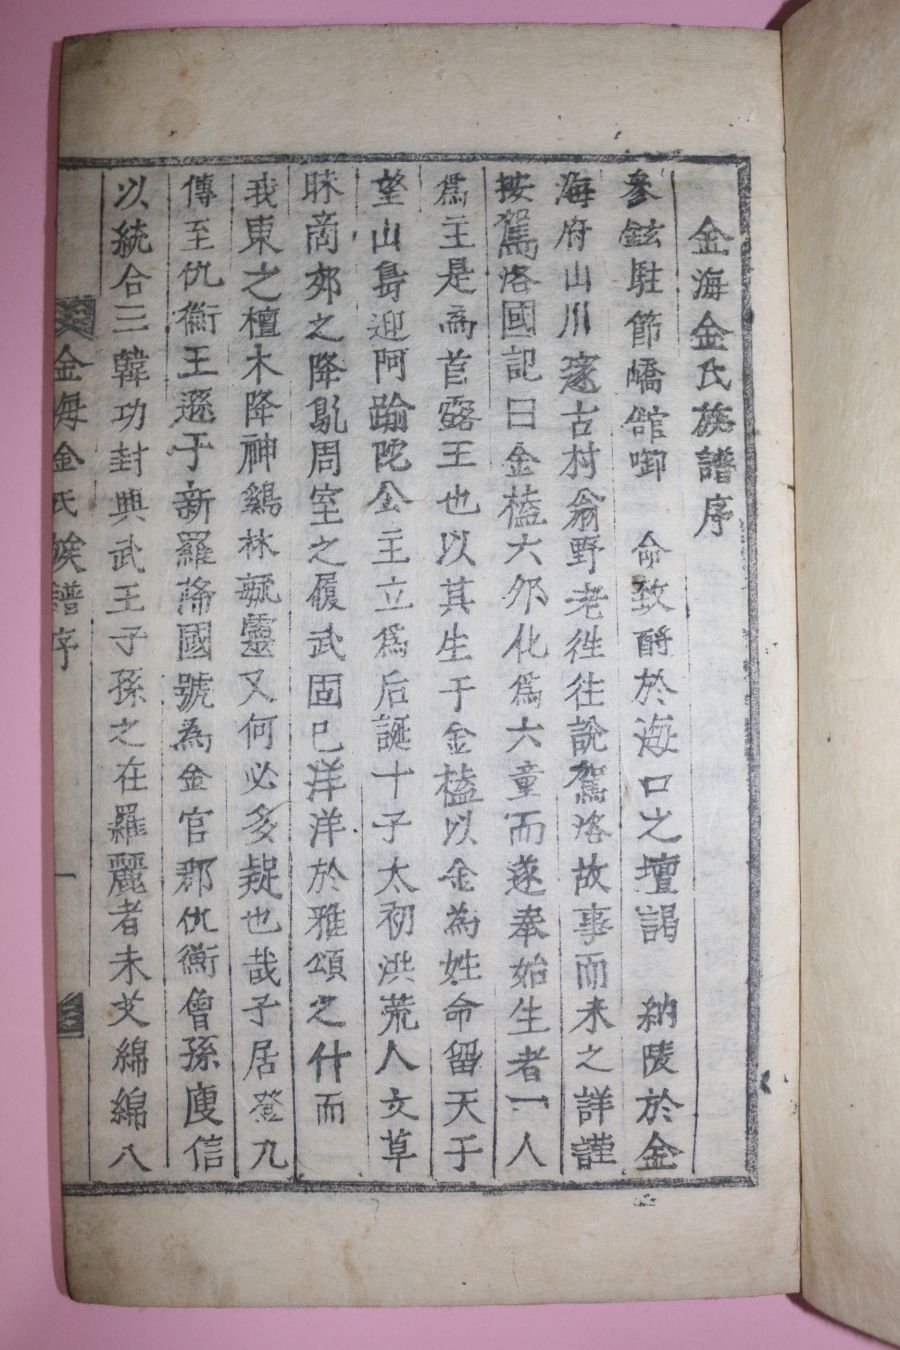 金海金氏族譜序
參鉉駐節嶠館啣 命致酹於海口之壇謁 納陵於金
海府山川邃古村翁野老徃往說駕洛故事而未之詳謹
按駕洛國記曰金榼六夘化爲六童而遂奉始生者一人
爲主是爲首露王也以其生于金榼以金為姓命留天于
望山島迎阿踰陀公主立爲后誕十子太初洪荒人文草
昧商郊之降鳦周室之履武固已洋洋於雅頌之什而
我東之檀木降神鷄林毓靈又何必多疑也哉子居登九
傳至仇衡王遜于新羅降國號為金官郡仇衡曾孫庾信
以統合三韓功封興武王子孫之在羅麗者未艾綿綿八
金海金氏族譜序 一